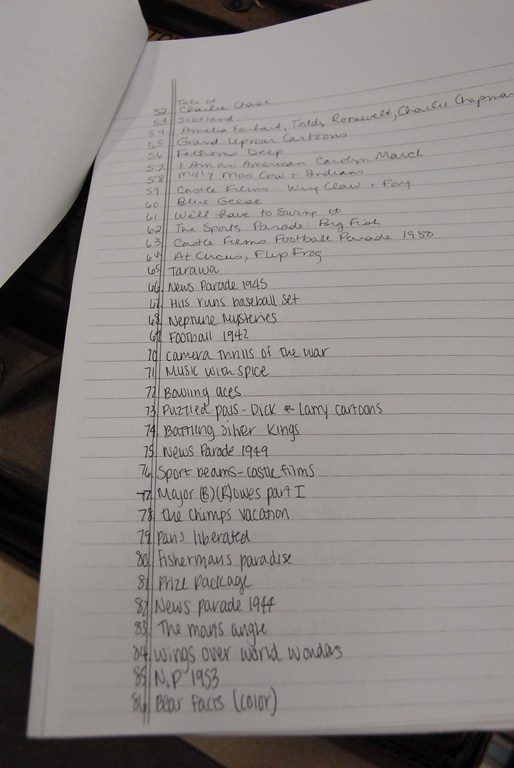 Tale of
52. Charlie Chase
53. Scotland
54. Amelia Earhart, Teddy Roosevelt, Charlie Chapman
55 Grand Uproar Cartoons
56. Fathoms Deep
57. I Am an American Carolyn March
58. Molly Moo Cow + Indians
59. Castle Films Wing Claw + Fang
60 Blue Geese
61 We'll have to Swing it
62 The Sports Parade: Big Fish
63 Castle Films Football Parade 1950
64 At Circus, Flip Frog
65 Tarawa
66 News Parade 1945
67 Hits runs baseball set
68 Neptune Mysteries
69 Football 1942
70 Camera thrills of the war
71 Music with spice
72 Bowling aces
73 Puzzled pals - Dick & Larry cartoons
74 Battling Silver Kings
75 News Parade 1949
76 Sport beams - castle films
77 Major (B)(R)owes part I
78 The chimps vacation
79 Paris liberated
80 Fishermans paradise
81 Prize Package
82 News parade 1944
83 The mans angle
84 Wings over world wondas
85 N.P 1953
86 Bear Facts (color)